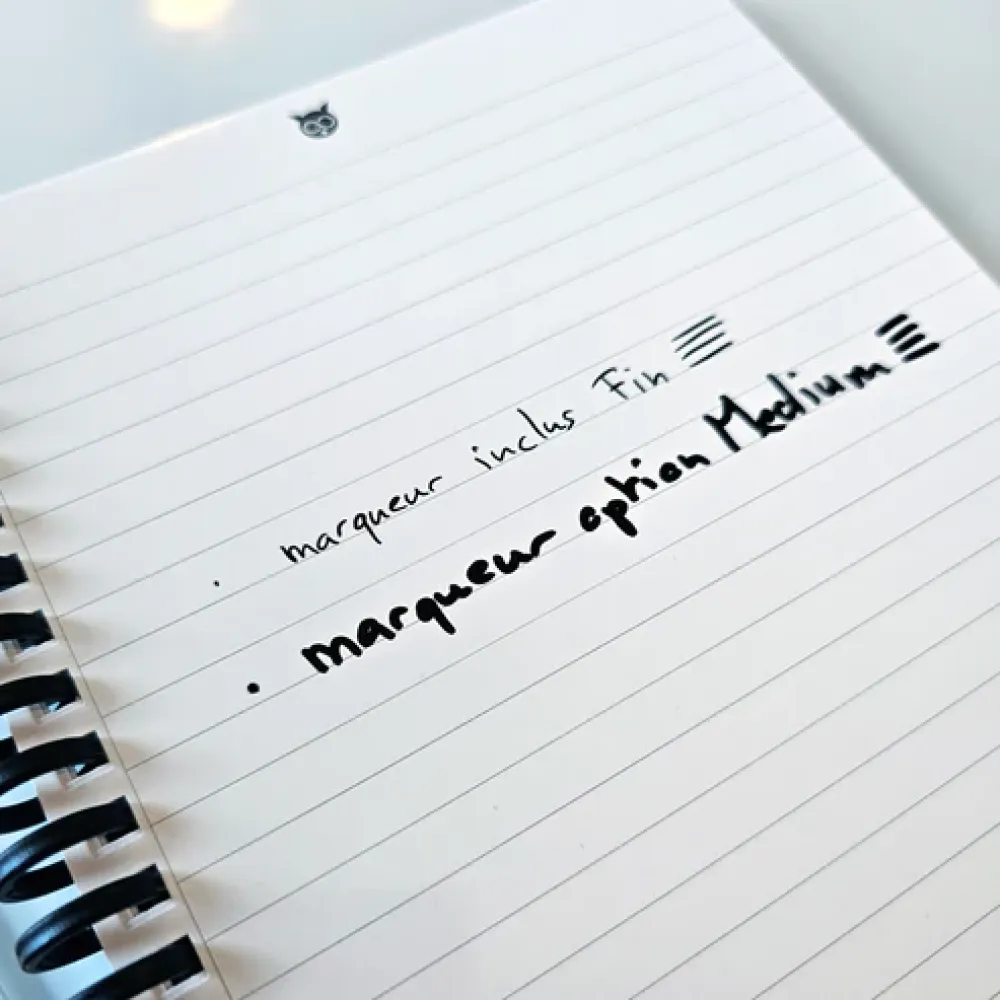 · marqueur inclus Fin
· marqueur option Medium